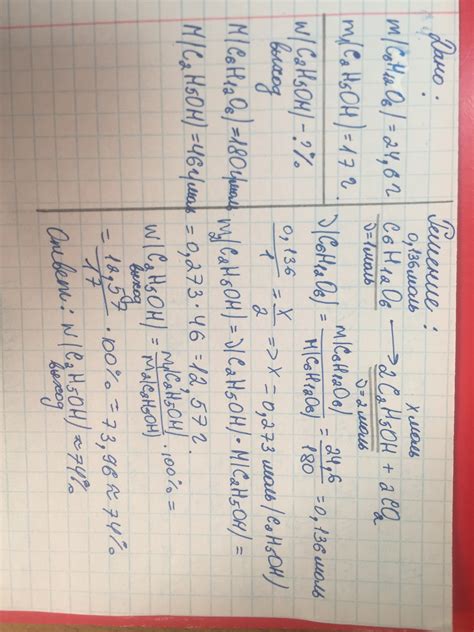 Дано:
m(C6H12O6)=24,6г
m(C2H5OH)=17г.
W(C2H5OH)-?%
выход
M(C6H12O6)=180г/моль
M(C2H5OH)=46г/моль
Решение:
0,136моль X моль
C6H12O6 → 2C2H5OH + 2CO2
ν=1моль ν=2моль
ν(C6H12O6)= m(C6H12O6) / M(C6H12O6) = 24,6 / 180 = 0,136моль
0,136 / 1 = X / 2 => X = 0,273моль(C2H5OH)
m(C2H5OH)=ν(C2H5OH)·M(C2H5OH)=
=0,273·46=12,57г.
W(C2H5OH)= m(C2H5OH) / m(C2H5OH) ·100%=
выход
= 12,57 / 17 ·100%=73,96≈74%
Ответ: W(C2H5OH)≈74%
выход